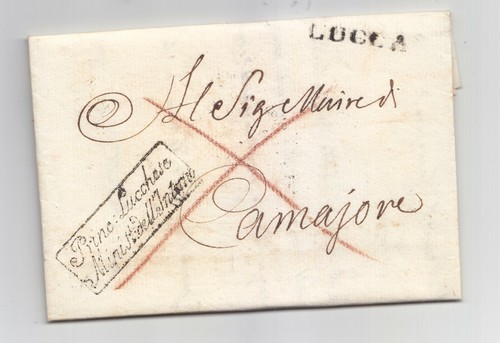 LUCCA
Al Sig Maire di
Camajore
Princ. Lucchese
Minist. dell'Interno